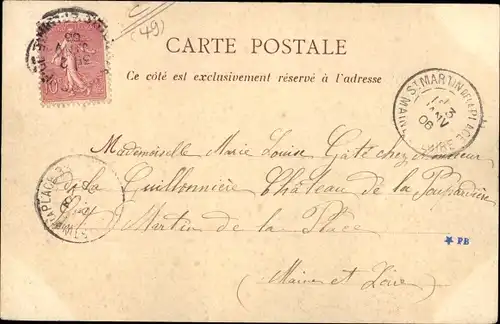 (49)
CARTE POSTALE
Ce côté est exclusivement réservé à l'adresse
10
ST MARTIN DE LA PLACE
13
JANV
06
MAINE
LOIRE
Mademoiselle Marie Louise Gâté chez Monsieur
de La Guillonnière Château de la
Martin de la Place
(Maine et Loire)
LA PLACE
★ PB